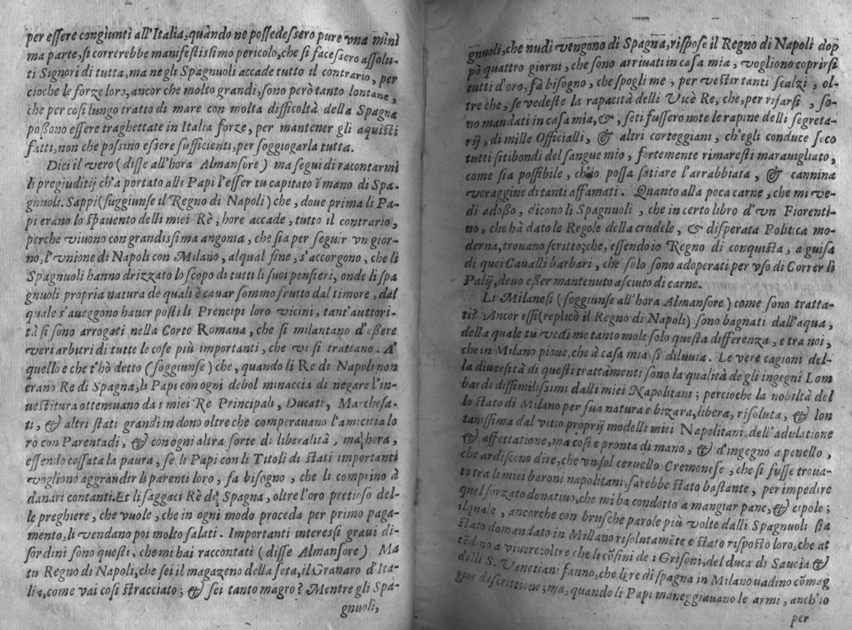 per essere congiunti all'Italia, quando ne possedessero pure vna mini
ma parte, si correrebbe manifestissimo pericolo, che si facessero assolu-
ti Signori di tutta, ma ne gli Spagnuoli accade tutto il contrario, per
cioche le forze loro, ancor che molto grandi, sono però tanto lontane,
che per così lungo tratto di mare con molta difficoltà della Spagna
possono essere traghettate in Italia forze, per mantener gli aquisti
fatti, non che possino essere sufficienti, per soggiogarla tutta.
Dici il vero (disse all'hora Almansore) ma segui di racontarmi
li pregiuditij ch'a portato alli Papi l'esser tu capitato ĩ mano di Spa-
gnuoli. Sappi (suggiunse il Regno di Napoli) che, doue prima li Pa-
pi erano lo spauento delli miei Rè, hore accade, tutto il contrario,
perche viuono con grandissima angonia, che sia per seguir vn gior-
no, l'vnione di Napoli con Milano, al qual fine, s'accorgono, che li
Spagnuoli hanno drizzato lo scopo di tutti li suoi pensieri, onde li spa
gnuoli propria natura de quali è cauar sommo frutto dal timore, dal
quale s'aueggono hauer posti li Prencipi loro vicini, tant'auttori-
tà si sono arrogati nella Corte Romana, che si milantano d'essere
veri arbitri di tutte le cose più importanti, che vi si trattano. A'
quello e che t'hò detto (soggiunse) che, quando li Re di Napoli non
erano Re di Spagna, li Papi con ogni debol minaccia di negare l'in-
uestitura ottenuano da i miei Re Principali, Ducati, Marchesa-
ti, & altri stati grandi in dono oltre che comperauano l'amicitia lo
ro con Parentadi, & con ogni altra sorte di liberalità, ma hora,
essendo cessata la paura, se li Papi con li Titoli di stati importanti
vogliono aggrandir li parenti loro, fa bisogno, che li comprino à
danari contanti. Et li saggaci Rè di Spagna, oltre l'oro pretioso del-
le preghiere, che vuole, che in ogni modo proceda per primo paga-
mento, li vendano poi molto salati. Importanti interessi graui di-
sordini sono questi, che mi hai raccontati (disse Almansore) Ma
tu Regno di Napoli, che sei il magazeno della seta, il Granaro d'Ita-
lia, come vai così stracciato; & sei tanto magro? Mentre gli Spa-
gnuoli,
gnuoli, che nudi vengono di Spagna, rispose il Regno di Napoli dop
pò quattro giorni, che sono arriuati in casa mia, vogliono coprirsi
tutti d'oro, fà bisogno, che spogli me, per vestir tanti scalzi, ol-
tre che, se vedeste la rapacità delli Vicè Re, che, per rifarsi, so-
no mandati in casa mia, &, se ti fussero note le rapine delli segreta-
rij, di mille Officialli, & altri corteggiani, ch'egli conduce seco
tutti sitibondi del sangue mio, fortemente rimaresti marauigliato,
come sia possibile, ch'io possa satiare l'arrabbiata, & cannina
voraggine di tanti affamati. Quanto alla poca carne, che mi ve-
di adosso, dicono li Spagnuoli, che in certo libro d'vn Fiorenti-
no, che hà dato le Regole della crudele, & disperata Politica mo-
derna, trouano scritto; che, essendo io Regno di conquista, a guisa
di quei Caualli barbari, che solo sono adoperati per vso di Correr li
Palij, deuo esser mantenuto asciuto di carne.
Li Milanesi (soggiunse all'hora Almansore) come sono tratta-
ti? Ancor essi (replicò il Regno di Napoli) sono bagnati dall'aqua,
della quale tu vedi me tanto mole solo questa differenza, e tra noi,
che in Milano pioue, che à casa mia si diluuia. Le vere cagioni del-
la diuersità di questi trattamenti sono la qualità de gli ingegni Lom
bardi dissimilissimi dalli miei Napolitani; percioche la nobiltà del
lo stato di Milano per sua natura e bizara, libera, risoluta, & lon
tanissima dal vitio proprij modelli miei Napolitani, dell'adulatione
& affettatione, ma così e pronta di mano, & d'ingegno a penello,
che ardiscono dire, che vn sol ceruello Cremonese, che si fusse troua-
to tra li miei baroni napolitani, sarebbe stato bastante, per impedire
quel sforzato donatiuo, che mi ha condotto a mangiar pane, & cipole;
il quale, ancorche con brusche parole più volte dalli Spagnuoli sia
stato domandato in Millano risolutamẽte e stato risposto loro, che at
tẽdino a viuere: oltre che le cõfini de i Grisoni, del duca di Sauoia &
delli S. Venetiani fanno, che li re di spagna in Milano uadino cõ mag
gior discrittione; ma, quando li Papi maneggiauano le armi, anch'io
per